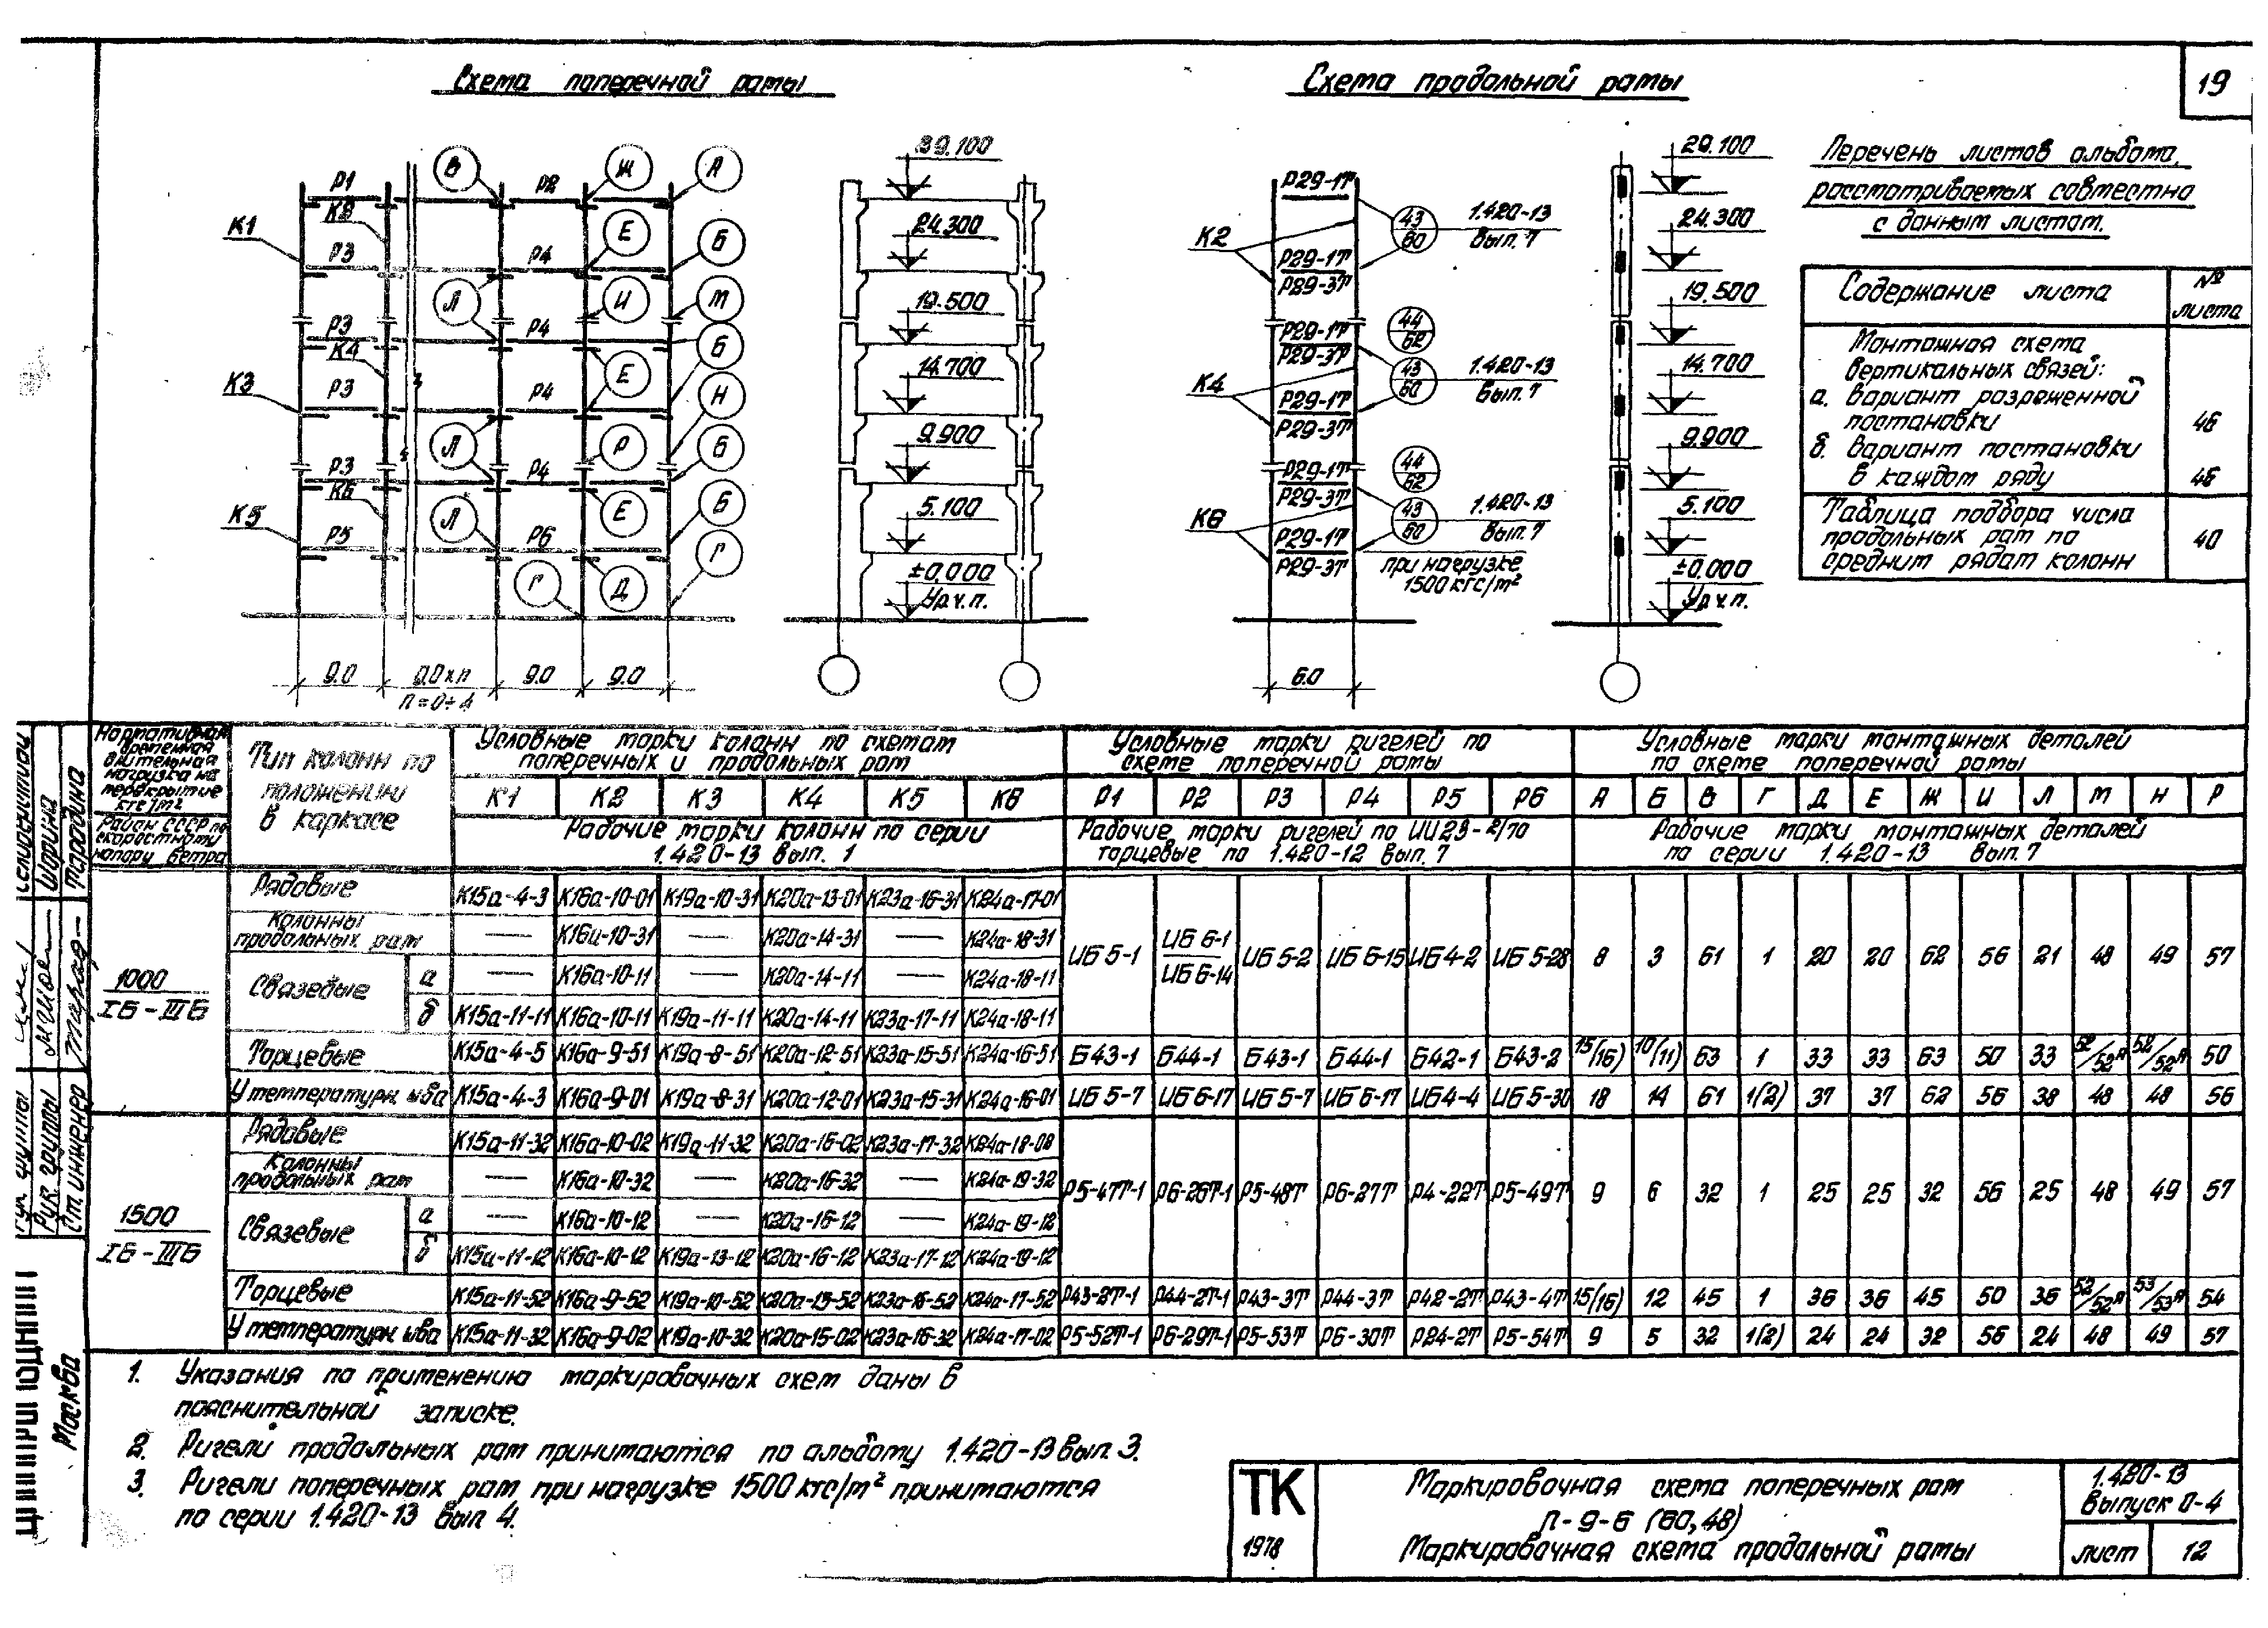 19
Схема поперечной рамы
Р1
К2
Р2
В
Ж
А
К1
Р3
Р4
Е
Б
Л
И
М
Р3
К4
Р4
Б
К3
Р3
Р4
Е
Н
Л
Р
Б
Р3
К6
Р4
К5
Л
Е
Б
Р5
Р6
Г
Д
Г
9.0
9.0 х п
9.0
9.0
п = 0 ÷ 4
39.100
24.300
19.500
14.700
9.900
5.100
±0.000
Ур.ч.п.
Схема продольной рамы
Р29-1Т
К2
43
60
1.420-13
вып. 7
Р29-1Т
Р29-3Т
Р29-1Т
Р29-3Т
44
62
К4
43
60
1.420-13
вып. 7
Р29-1Т
Р29-3Т
Р29-1Т
Р29-3Т
44
62
К6
43
60
1.420-13
вып. 7
Р29-1Т
Р29-3Т
при нагрузке
1500 кгс/м²
6.0
29.100
24.300
19.500
14.700
9.900
5.100
±0.000
Ур.ч.п.
Перечень листов альбома,
рассматриваемых совместно
с данным листом.
Содержание листа | № листа
Монтажная схема
вертикальных связей:
а. вариант разреженной
постановки 46
б. вариант постановки
в каждом ряду 46
Таблица подбора числа
продольных рам по 40
средним рядам колонн
Нормативная временная длительная нагрузка на перекрытие кгс/м²
Район СССР по скоростному напору ветра
Тип колонн по положению в каркасе
Условные марки колонн по схемам поперечных и продольных рам
Условные марки ригелей по схеме поперечной рамы
Условные марки монтажных деталей по схеме поперечной рамы
К1 К2 К3 К4 К5 К6 Р1 Р2 Р3 Р4 Р5 Р6 А Б В Г Д Е Ж И Л М Н Р
Рабочие марки колонн по серии 1.420-13 вып. 1
Рабочие марки ригелей по ИИ23-2/70 торцевые по 1.420-12 вып. 7
Рабочие марки монтажных деталей по серии 1.420-13 вып. 7
1000
IБ - IIIБ
Рядовые К15а-4-3 К16а-10-01 К19а-10-31 К20а-13-01 К23а-16-31 К24а-17-01
Колонны продольных рам — К16а-10-31 — К20а-14-31 — К24а-18-31
Связевые а — К16а-10-11 — К20а-14-11 — К24а-18-11
б К15а-11-11 К16а-10-11 К19а-11-11 К20а-14-11 К23а-17-11 К24а-18-11
ИБ 5-1 ИБ 6-1 ИБ 6-14 ИБ 5-2 ИБ 6-15 ИБ 4-2 ИБ 5-28 8 3 61 1 20 20 62 56 21 48 49 57
Торцевые К15а-4-5 К16а-9-51 К19а-8-51 К20а-12-51 К23а-15-51 К24а-16-51 Б43-1 Б44-1 Б43-1 Б44-1 Б42-1 Б43-2 15/(16) 10/(11) 63 1 33 33 63 50 33 52/52А 52/52А 50
У температурн. шва К15а-4-3 К16а-9-01 К19а-8-31 К20а-12-01 К23а-15-31 К24а-16-01 ИБ 5-7 ИБ 6-17 ИБ 5-7 ИБ 6-17 ИБ 4-4 ИБ 5-30 18 14 61 1(2) 37 37 62 56 38 48 48 56
1500
IБ - IIIБ
Рядовые К15а-11-32 К16а-10-02 К19а-11-32 К20а-16-02 К23а-17-32 К24а-18-08
Колонны продольных рам — К16а-10-32 — К20а-16-32 — К24а-19-32
Связевые а — К16а-10-12 — К20а-16-12 — К24а-19-12
б К15а-11-12 К16а-10-12 К19а-13-12 К20а-16-12 К23а-17-12 К24а-19-12
Р5-47Т-1 Р6-26Т-1 Р5-48Т Р6-27Т Р4-22Т Р5-49Т 9 6 32 1 25 25 32 56 25 48 49 57
Торцевые К15а-11-52 К16а-9-52 К19а-10-52 К20а-15-52 К23а-16-52 К24а-17-52 Р43-2Т-1 Р44-2Т-1 Р43-3Т Р44-3Т Р42-2Т Р43-4Т 15/(16) 12 45 1 36 36 45 50 36 52/52А 53/53А 54
У температурн. шва К15а-11-32 К16а-9-02 К19а-10-32 К20а-15-02 К23а-16-32 К24а-17-02 Р5-52Т-1 Р6-29Т-1 Р5-53Т Р6-30Т Р24-2Т Р5-54Т 9 5 32 1(2) 24 24 32 56 24 48 49 57
1. Указания по применению маркировочных схем даны в
пояснительной записке.
2. Ригели продольных рам принимаются по альбому 1.420-13 вып. 3.
3. Ригели поперечных рам при нагрузке 1500 кгс/м² принимаются
по серии 1.420-13 вып 4.
ТК
1978
Маркировочная схема поперечных рам
п-9-6 (60,48)
Маркировочная схема продольной рамы
1.420-13
выпуск 0-4
лист 12
Рук. группы
Ст. инженер
Шорина
Тарадина
Москва